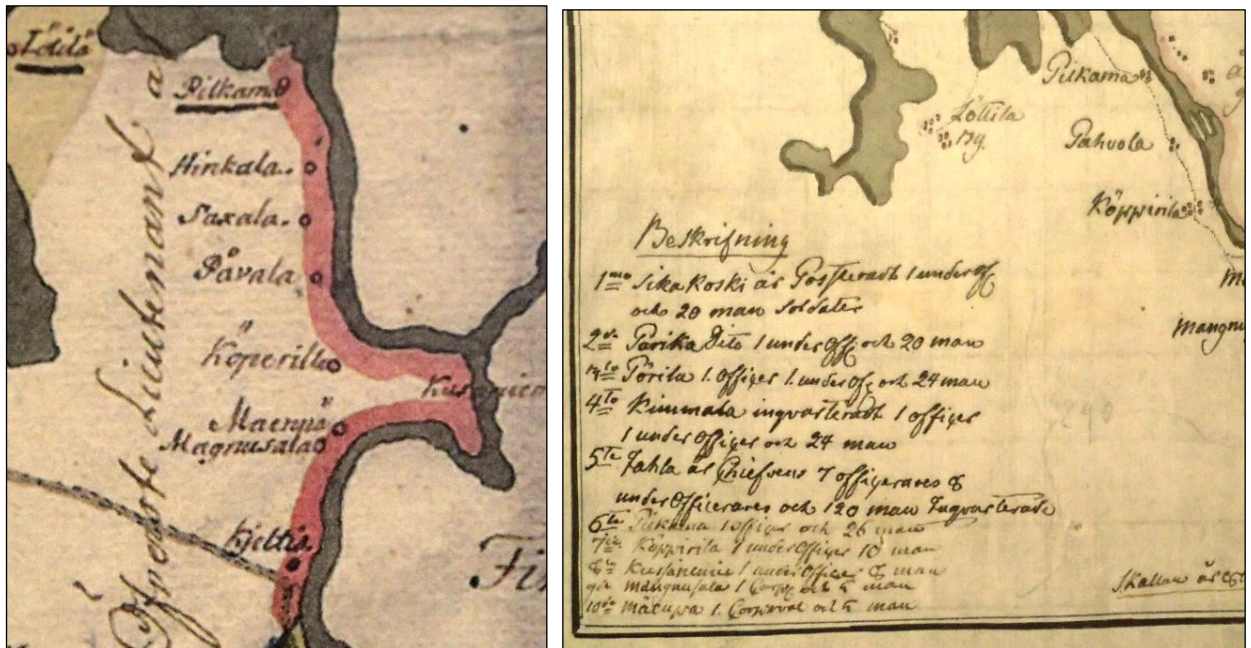 Lötilä
Pilkama
Hinkala.
Saxala.
Påvala
Köperilla
Kusaniem
Maenpä
Magnusala
Kjeltis
Öfverste Lieutenant
Fi
Pilkama
Löttila
By.
Pahvola
Köppirila
Ma
Mangnu
Beskrifning
1mo Sika Koski är Posteradt 1 under off
och 20 man Soldater
2do Parika Dito 1 under Off och 20 man
Pörila 1. Officer 1. under Off och 24 man
4to Kimmala inqvarteradt 1 officer
1 under Officer och 24 man
5te Tahla är Chiefens 7 officerares &
under Officerares och 120 man Inqvarterade
6te Pilkama 1 officer och 26 man
Köppirila 1 under Officer 10 man
Kussanemie 1 under Officer 8 man
Mangnusala 1 Corp och 5 man
10de Mäenpä 1. Corporal och 5 man
290
Skallan är